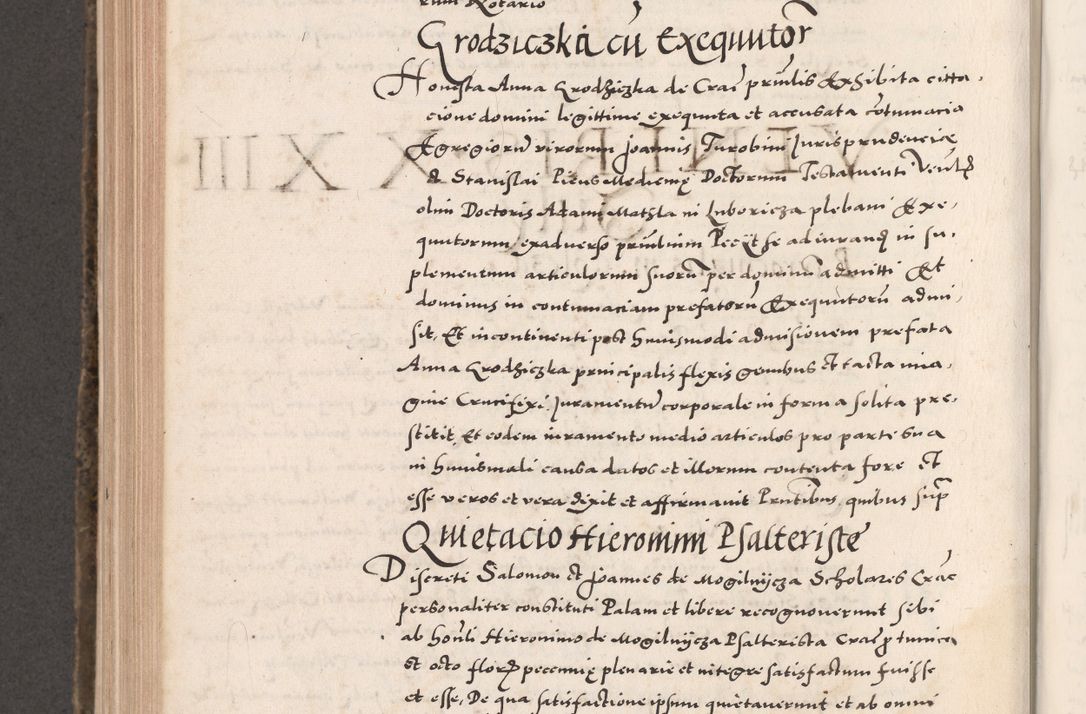 rum Notario
Grodziczka cū Exequutor
Honesta Anna Grodziczka de Crac prīnlis Exhibita citta-
cione domini legittime exequuta et accusata cōtumacia
Egregiorū virorum Joannis Turobini Jurisprudencię
& Stanislai Picus Medicinę Doctorum Testamenti Venlis
olim Doctoris Adami Mathla in Luboricza plebani Exe-
quutorum, ex adverso prīnlium Peciit se ad iurand in su-
plementum articulorum suorū per dominū admitti Et
dominus in contumaciam prefatorū Exequutorū admi-
sit, Et incontinenti post huiusmodi admisionem prefata
Anna Grodziczka principalis flexis genibus et tacta ima-
gine Crucifixi Juramentū corporale in forma solita pre-
stitit, Et eodem iuramento medio articulos pro parte sua
in huiusmodi causa datos et illorum contenta fore et
esse veros et vera dixit et affirmavit Prntibus quibus sup
Quietacio Hieronimi Psalteriste
Discreti Salomon et Joannes de Mogilnijcza Scholares Crac
personaliter constituti Palam et libere recognoverunt sebi
ab honli Hieronimo de Mogilnijcza Psalterista Crac p tunica
et octo flor pecunię plenarie et integre satisfactum fuisse
et esse, De qua satisfactione ipsum quietaverunt et ab omni